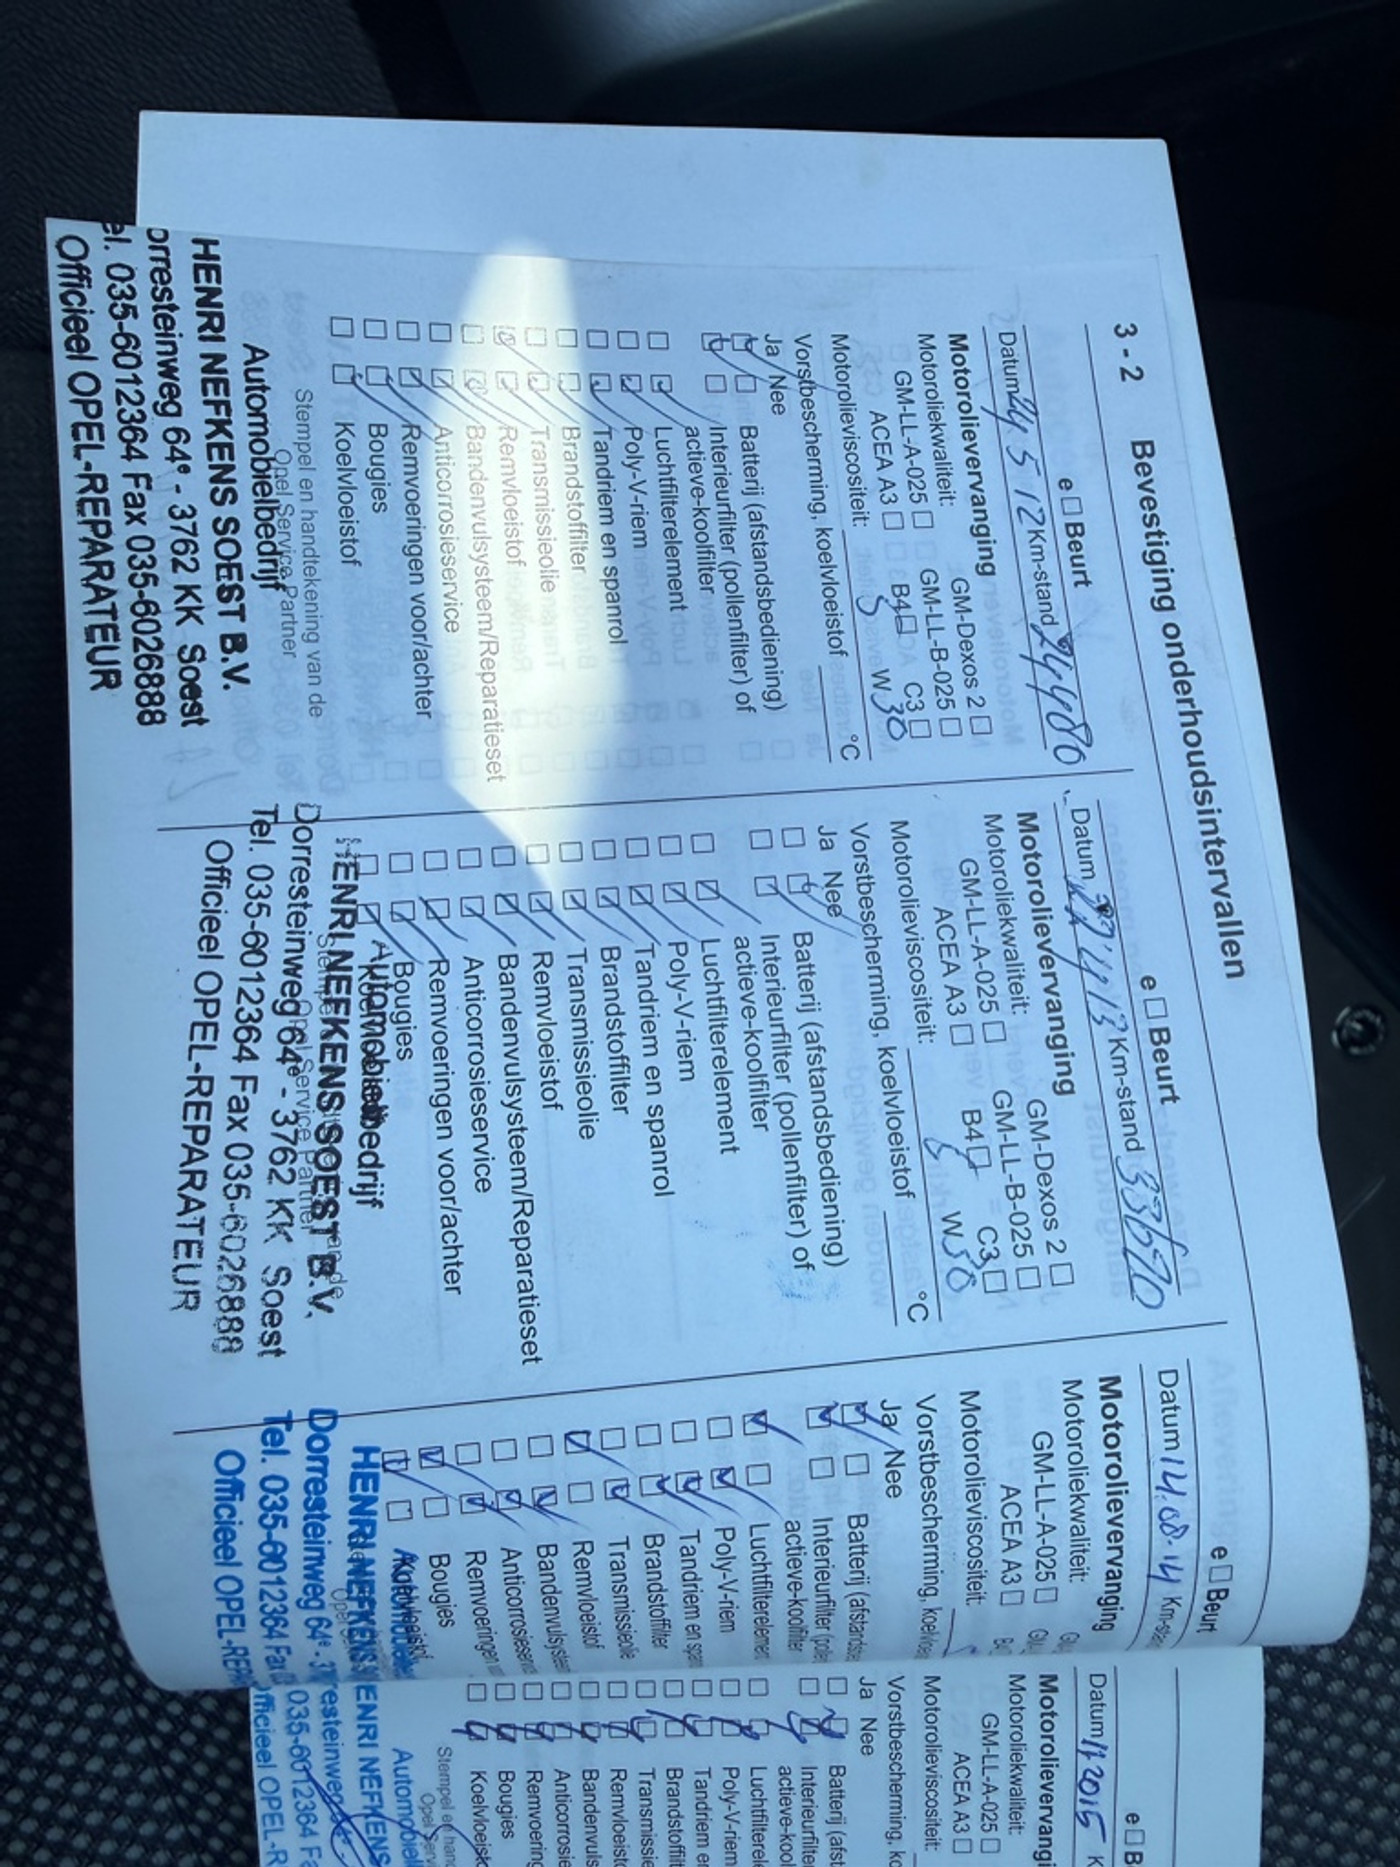 3 - 2 Bevestiging onderhoudsintervallen
e □ Beurt
Datum 24 5 12 Km-stand 24480
Motorolievervanging
Motoroliekwaliteit: GM-Dexos 2 □
GM-LL-A-025 □ GM-LL-B-025 □
ACEA A3 □ B4 □ C3 □
Motorolieviscositeit: 5 W 30
Vorstbescherming, koelvloeistof °C
Ja Nee
Batterij (afstandsbediening)
Interieurfilter (pollenfilter) of
actieve-koolfilter
Luchtfilterelement
Poly-V-riem
Tandriem en spanrol
Brandstoffilter
Transmissieolie
Remvloeistof
Bandenvulsysteem/Reparatieset
Anticorrosieservice
Remvoeringen voor/achter
Bougies
Koelvloeistof
Stempel en handtekening van de
Opel Service Partner
Automobielbedrijf
HENRI NEFKENS SOEST B.V.
orresteinweg 64ᵉ - 3762 KK Soest
el. 035-6012364 Fax 035-6026888
Officieel OPEL-REPARATEUR
e □ Beurt
Datum 13 Km-stand 33670
Motorolievervanging
Motoroliekwaliteit: GM-Dexos 2 □
GM-LL-A-025 □ GM-LL-B-025 □
ACEA A3 □ B4 □ C3 □
Motorolieviscositeit: 5 W 30
Vorstbescherming, koelvloeistof °C
Ja Nee
Batterij (afstandsbediening)
Interieurfilter (pollenfilter) of
actieve-koolfilter
Luchtfilterelement
Poly-V-riem
Tandriem en spanrol
Brandstoffilter
Transmissieolie
Remvloeistof
Bandenvulsysteem/Reparatieset
Anticorrosieservice
Remvoeringen voor/achter
Bougies
Automobielbedrijf
HENRI NEFKENS SOEST B.V.
Opel Service Partner
Dorresteinweg 64ᵉ - 3762 KK Soest
Tel. 035-6012364 Fax 035-6026888
Officieel OPEL-REPARATEUR
e □ Beurt
Datum 14.08.14 Km-sta
Motorolievervanging
Motoroliekwaliteit:
GM-LL-A-025 □
ACEA A3 □
Motorolieviscositeit:
Vorstbescherming, koelv
Ja Nee
Batterij (afstandsbe
Interieurfilter (polle
actieve-koolfilter
Luchtfilterelemen
Poly-V-riem
Tandriem en spa
Brandstoffilter
Transmissieolie
Remvloeistof
Bandenvulsyste
Anticorrosieserv
Remvoeringen
Bougies
Koelvloeistof
HENRI NEFKENS
Dorresteinweg 64ᵉ - 3
Tel. 035-6012364 Fa
Officieel OPEL-REP
e □ B
Datum 2015 K
Motorolievervangi
Motoroliekwaliteit:
GM-LL-A-025 □
ACEA A3 □
Motorolieviscositeit:
Vorstbescherming, ko
Ja Nee
Batterij (afst
Interieurfilte
actieve-kool
Luchtfilterele
Poly-V-riem
Tandriem e
Brandstoffilt
Transmissie
Remvloeisto
Bandenvuls
Anticorrosie
Remvoering
Bougies
Koelvloeist
Stempel en han
Opel Serv
Automobiel
ENRI NEFKENS
resteinweg
035-6012364 Fa
fficieel OPEL-R